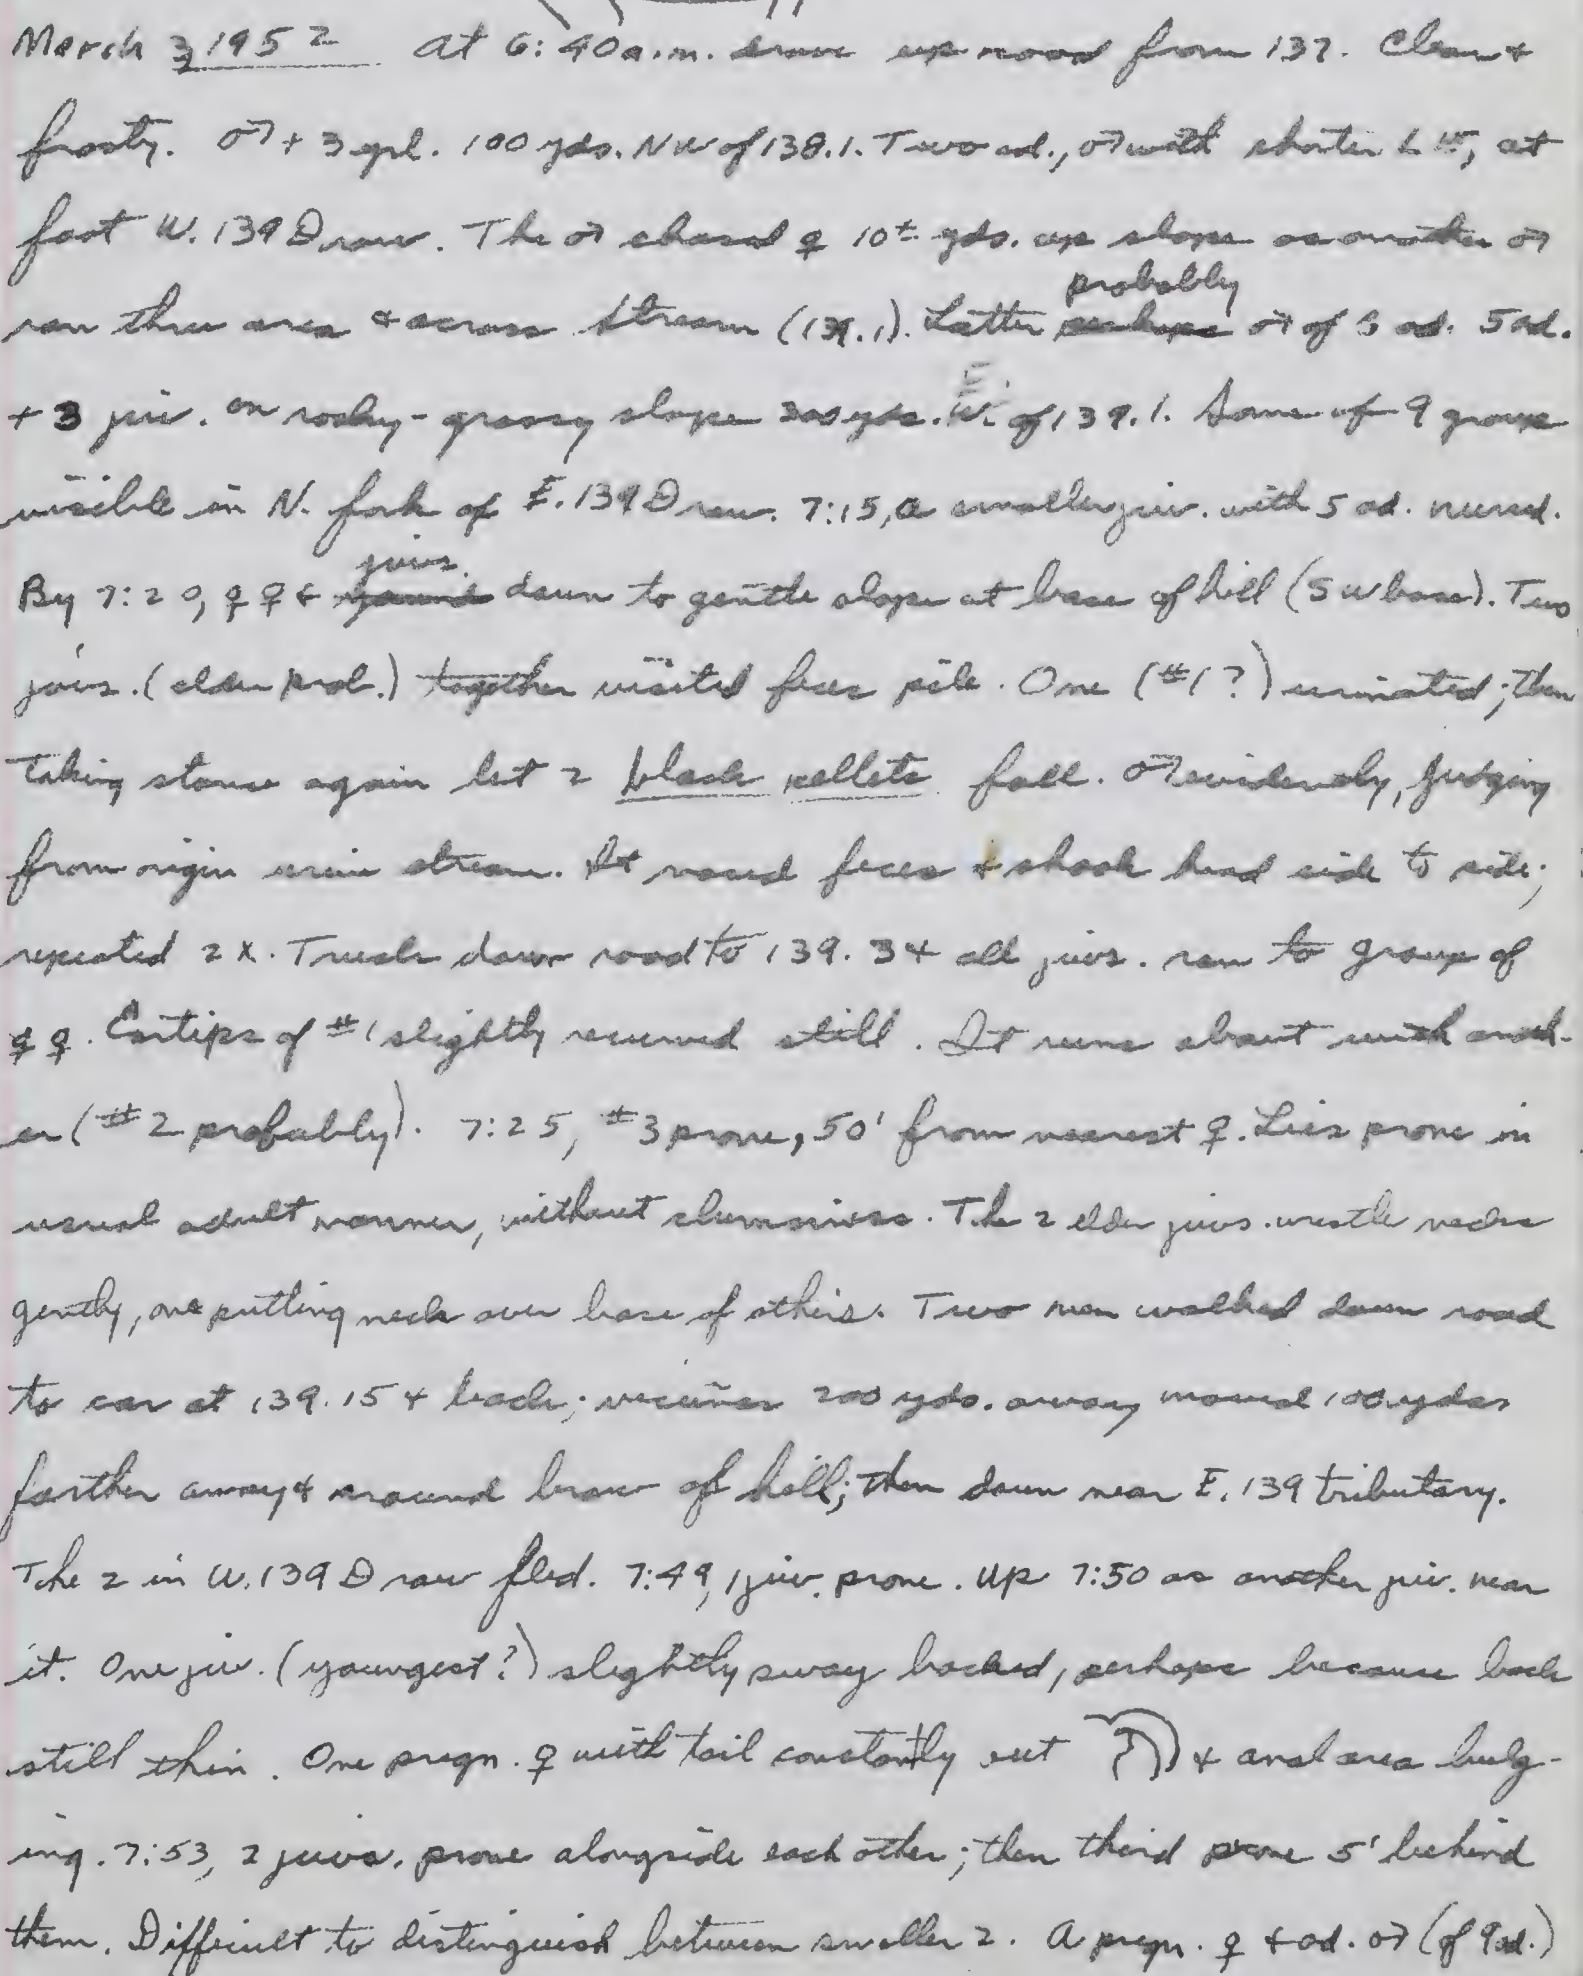 March 3, 1952 At 6:40a.m. drove up road from 137. Clear &
frosty. ♂ + 3 yrl. 100 yds. NW of 138.1. Two ad., ♂ with shorter L , at
foot W. 139 Draw. The ♂ chased ♀ 10± yds. up slope as another ♂
probably
ran thru area & across stream (139.1). Latter perhaps ♂ of 5 ad. 5 ad.
+ 3 juv. on rocky-grassy slope 200 yds. E. of 139.1. Some of 9 group
visible in N. fork of E. 139 Draw. 7:15, a smaller juv. with 5 ad. nursed.
juvs.
By 7:20, ♀♀ & young down to gentle slope at base of hill (SW base). Two
juvs. (elder prob.) together visited feces pile. One (#1?) urinated; then
taking stance again let 2 black pellets fall. ♂ evidently, judging
from origin urine stream. It nosed feces & shook head side to side;
repeated 2 x. Truck down road to 139.3 & all juvs. ran to group of
♀♀. Eartips of #1 slightly recurved still. It runs about with anoth-
er (#2 probably). 7:25, #3 prone, 50' from nearest ♀. Lies prone in
usual adult manner, without clumsiness. The 2 elder juvs. wrestle necks
gently, one putting neck over base of others. Two men walked down road
to car at 139.15 & back; vicunas 200 yds. away moved 100 yds
farther away & around brow of hill; then down near E. 139 tributary.
The 2 in W. 139 Draw fled. 7:49, 1 juv. prone. Up 7:50 as another juv. near
it. One juv. (youngest?) slightly sway backed, perhaps because back
still thin. One pregn. ♀ with tail constantly out & anal area bulg-
ing. 7:53, 2 juvs. prone alongside each other; then third prone 5' behind
them. Difficult to distinguish between smaller 2. A pregn. ♀ & ad. ♂ (of 9 ad.)